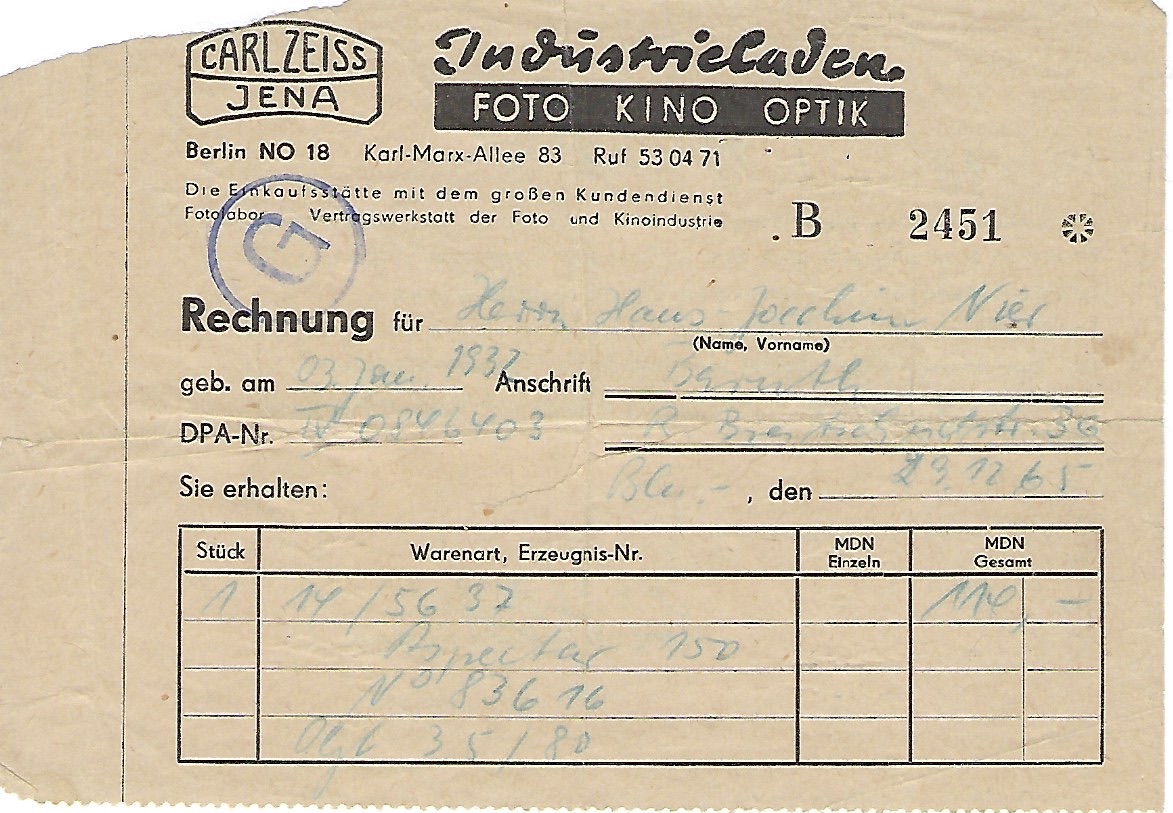 CARL ZEISS
JENA
Industrieladen
FOTO KINO OPTIK
Berlin NO 18 Karl-Marx-Allee 83 Ruf 53 04 71
Die Einkaufsstätte mit dem großen Kundendienst
Fotolabor Vertragswerkstatt der Foto und Kinoindustrie
G
B 2451
Rechnung für Herrn Hans-Joachim Nier
(Name, Vorname)
geb. am 03. Jan. 1937 Anschrift Baruth
DPA-Nr. IV 0846403 R. Breitscheidstr. 36
Sie erhalten: Bln.-, den 29.12.65
Stück Warenart, Erzeugnis-Nr. MDN Einzeln MDN Gesamt
1 14/56 37 114,-
Aspectar 150
No 83616
35/80